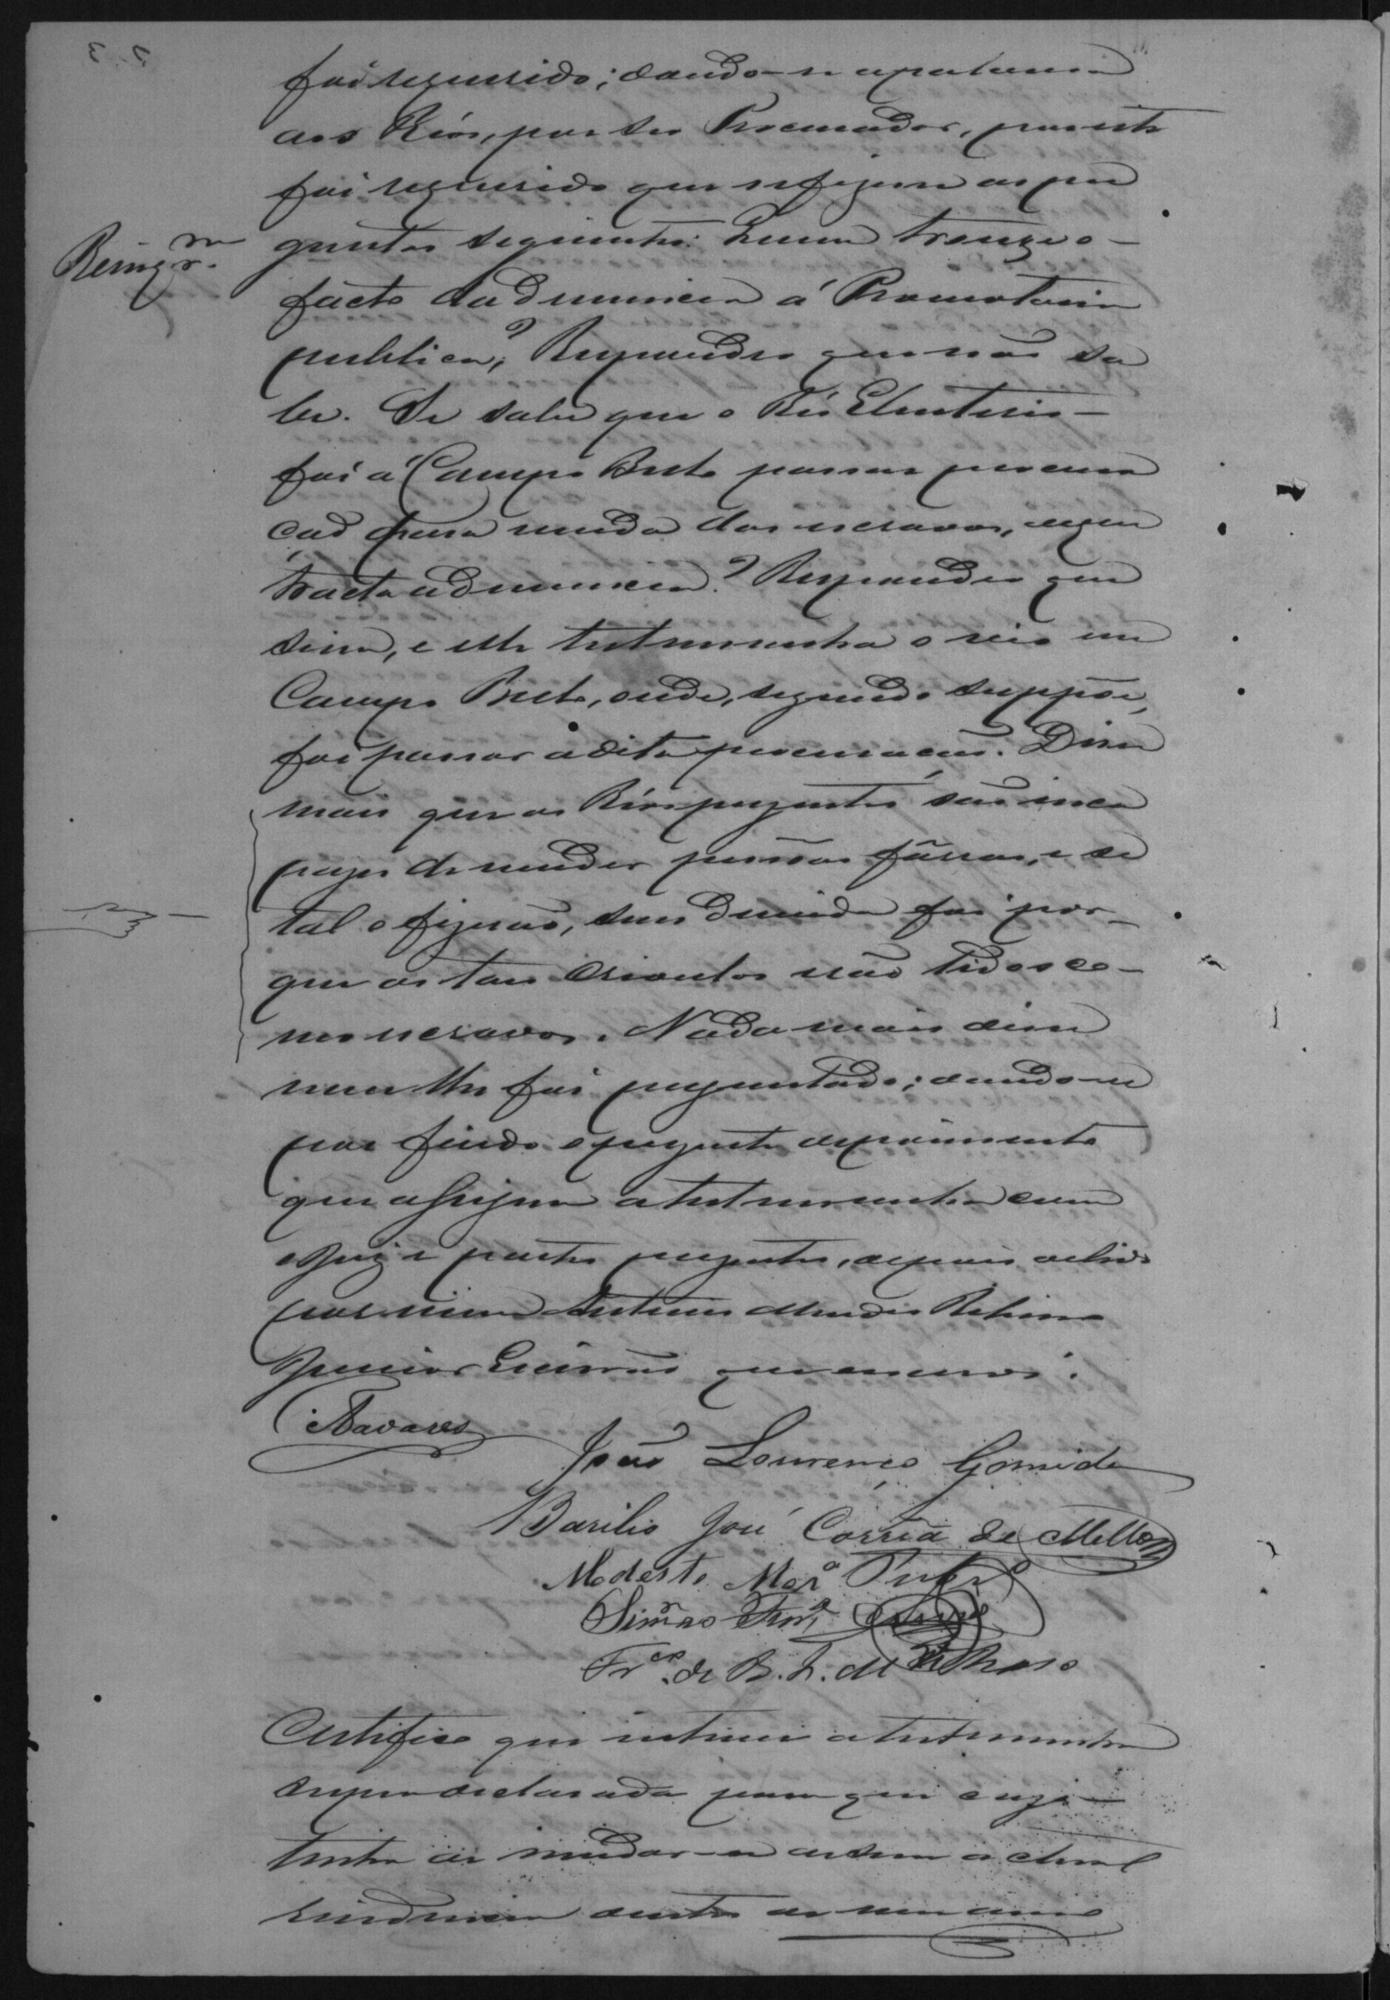 foi requerido; dando-se a palavra
aos Réos, por seu Procurador, por este
foi requerido que se fizesse as per
Reing.r m
guntas seguintes: Quem trouxe o
facto da denuncia á Promotoria
publica? Respondeo que não sa
be. Se sabe que o Réo Eleuterio
foi á Campo Bello passar procura
cão para venda dos escravos, de que
tracta a denuncia? Respondeo que
sim, e elle testemunha o veio em
Campo Bello, onde, segundo suppõe,
foi passar a dita procuracão. Disse
mais que os Réos presentes são inca
pazes de vender pessoas fôrras, e se
tal o fizerão, sem duvida foi por-
que os taes crioulos são tidos co-
mo escravos. Nada mais disse
nem lhe foi perguntado; dando-se
por findo o presente depoimento
que assigna a testemunha com
o Juiz e partes presentes, depois de lido
por mim Antonio Mendes
Junior Escrivão que escrevi.
Tavares
João Lourenço Gomide
Basilio José Corrêa de Mello
Modesto Mor.a
Simão
Fr.co de B. L. de
Certifico que intimei a testemunha
supra declarada para que caso
tenha de mudar-se de sua actual
residencia dentro de um anno